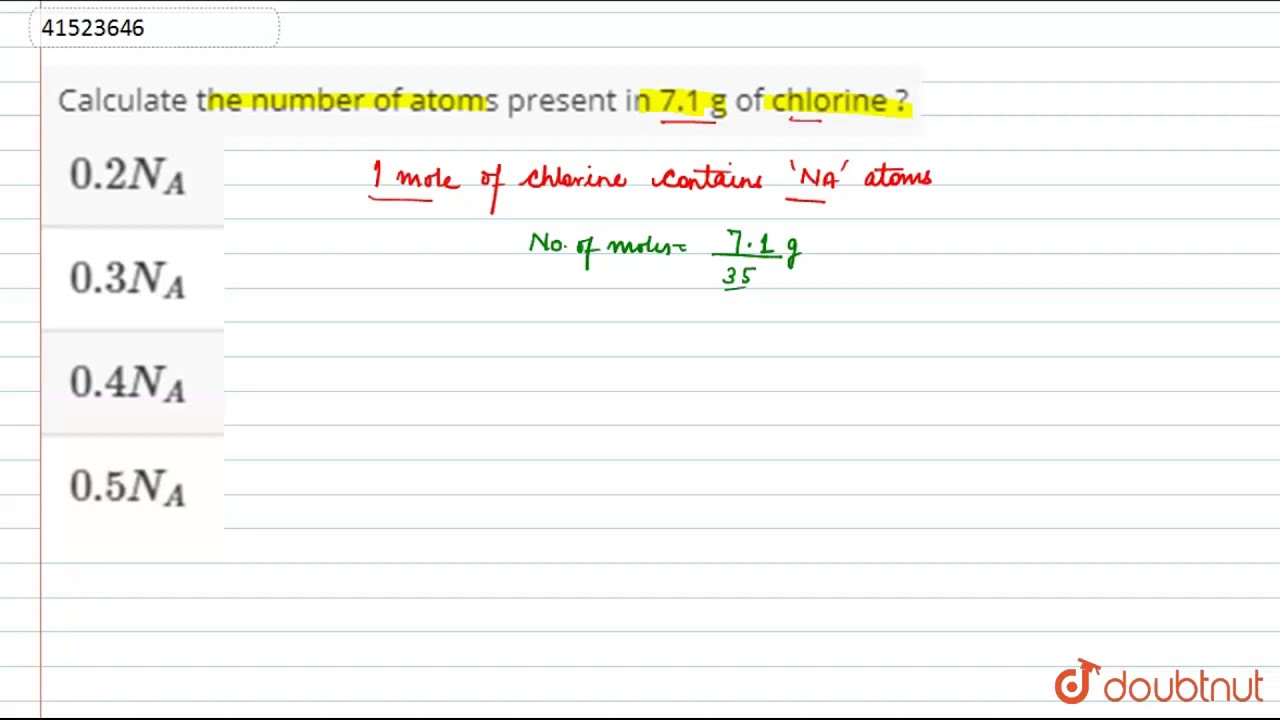 41523646
Calculate the number of atoms present in 7.1 g of chlorine ?
0.2N_A
1 mole of chlorine contains 'NA' atoms
No. of moles= 7.1 g
35
0.3N_A
0.4N_A
0.5N_A
doubtnut